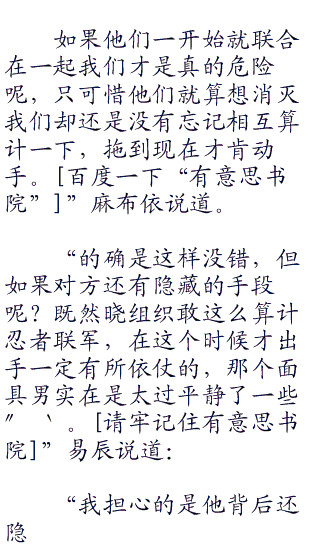 如果他们一开始就联合
在一起我们才是真的危险
呢，只可惜他们就算想消灭
我们却还是没有忘记相互算
计一下，拖到现在才肯动
手。[百度一下“有意思书
院”]”麻布依说道。
“的确是这样没错，但
如果对方还有隐藏的手段
呢？既然晓组织敢这么算计
忍者联军，在这个时候才出
手一定有所依仗的，那个面
具男实在是太过平静了一些
〞｀。[请牢记住有意思书
院]”易辰说道：
“我担心的是他背后还
隐